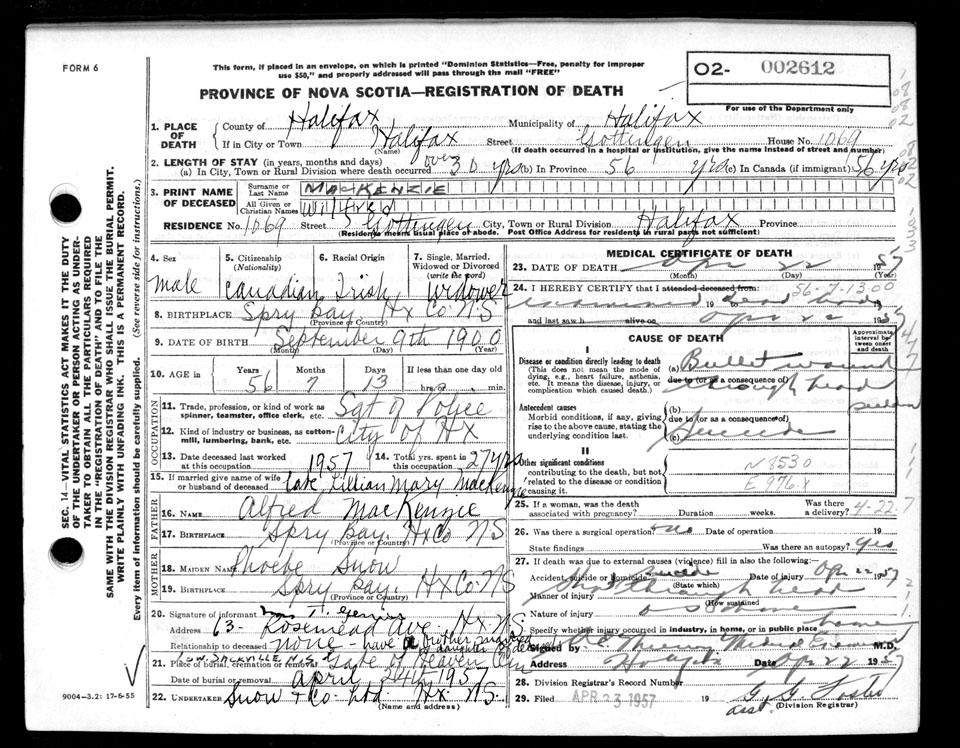 FORM 6
This form, if placed in an envelope, on which is printed "Dominion Statistics—Free, penalty for improper
use $50," and properly addressed will pass through the mail "FREE"
O2- 002612
For use of the Department only
PROVINCE OF NOVA SCOTIA—REGISTRATION OF DEATH
1. PLACE OF DEATH
County of Halifax Municipality of Halifax
If in City or Town Halifax Street Gottingen House No. 1069
(Name) (If death occurred in a hospital or institution, give the name instead of street and number)
2. LENGTH OF STAY (in years, months and days)
(a) In City, Town or Rural Division where death occurred over 30 yrs (b) In Province 56 yrs (c) In Canada (if immigrant) 56 yrs
3. PRINT NAME OF DECEASED
Surname or Last Name MACKENZIE
All Given or Christian Names Wilfred
RESIDENCE No. 1069 Street Gottingen City, Town or Rural Division Halifax Province
(Residence means usual place of abode. Post Office Address for residents in rural parts not sufficient)
4. Sex male
5. Citizenship (Nationality) Canadian
6. Racial Origin Irish
7. Single, Married, Widowed or Divorced (write the word) Widower
8. BIRTHPLACE Spry Bay Hx Co NS
(Province or Country)
9. DATE OF BIRTH September 9th 1900
(Month) (Day) (Year)
10. AGE in Years 56 Months 7 Days 13 If less than one day old
hrs. or min.
OCCUPATION
11. Trade, profession, or kind of work as spinner, teamster, office clerk, etc. Sgt of Police
12. Kind of industry or business, as cotton-mill, lumbering, bank, etc. City of Hx
13. Date deceased last worked at this occupation 1957
14. Total yrs. spent in this occupation 27 yrs
15. If married give name of wife or husband of deceased late Lillian Mary MacKenzie
FATHER
16. NAME Alfred MacKenzie
17. BIRTHPLACE Spry Bay Hx Co NS
(Province or Country)
MOTHER
18. MAIDEN NAME Phoebe Snow
19. BIRTHPLACE Spry Bay Hx Co. NS
(Province or Country)
20. Signature of informant
Address 63 Rosemead Ave. Hx NS
Relationship to deceased none - have a brother married daughter
21. Place of burial, cremation or removal Low. Sackville N.S. Gate of Heaven Cem
Date of burial or removal April 24th 1957
22. UNDERTAKER Snow & Co. Ltd Hx. NS.
(Name and address)
MEDICAL CERTIFICATE OF DEATH
23. DATE OF DEATH Apr 22 1957
(Month) (Day) (Year)
24. I HEREBY CERTIFY that I attended deceased from: 56-7-13-00
19 dead body
and last saw h alive on Apr 22 1957
CAUSE OF DEATH
Approximate interval between onset and death
I
Disease or condition directly leading to death
(This does not mean the mode of dying, e.g., heart failure, asthenia, etc. It means the disease, injury, or complication which caused death.)
(a) Bullet wound
due to (or as a consequence of)
through head
Antecedent causes
Morbid conditions, if any, giving rise to the above cause, stating the underlying condition last.
(b)
due to (or as a consequence of)
(c) Suicide
II
Other significant conditions
contributing to the death, but not related to the disease or condition causing it.
N 853 0
E 976 X
25. If a woman, was the death associated with pregnancy? Duration weeks. Was there a delivery? 4-22-7
26. Was there a surgical operation? no Date of operation 19
State findings Was there an autopsy? yes
27. If death was due to external causes (violence) fill in also the following:
Accident, suicide or homicide Suicide Date of injury Apr 22 1957
(State which)
Manner of injury shot through head
(How sustained)
Nature of injury as above
Specify whether injury occurred in industry, in home, or in public place home
Signed by M.D.
Address Halifax Date Apr 22 1957
28. Division Registrar's Record Number
29. Filed APR 23 1957 19 G. G. Foster
asst. (Division Registrar)
SEC. 14—VITAL STATISTICS ACT MAKES IT THE DUTY
OF THE UNDERTAKER OR PERSON ACTING AS UNDER-
TAKER TO OBTAIN ALL THE PARTICULARS REQUIRED
IN THE "REGISTRATION OF DEATH" AND TO FILE THE
SAME WITH THE DIVISION REGISTRAR WHO SHALL ISSUE THE BURIAL PERMIT.
WRITE PLAINLY WITH UNFADING INK. THIS IS A PERMANENT RECORD.
Every item of information should be carefully supplied. (See reverse side for instructions).
9004—3.2: 17-6-55